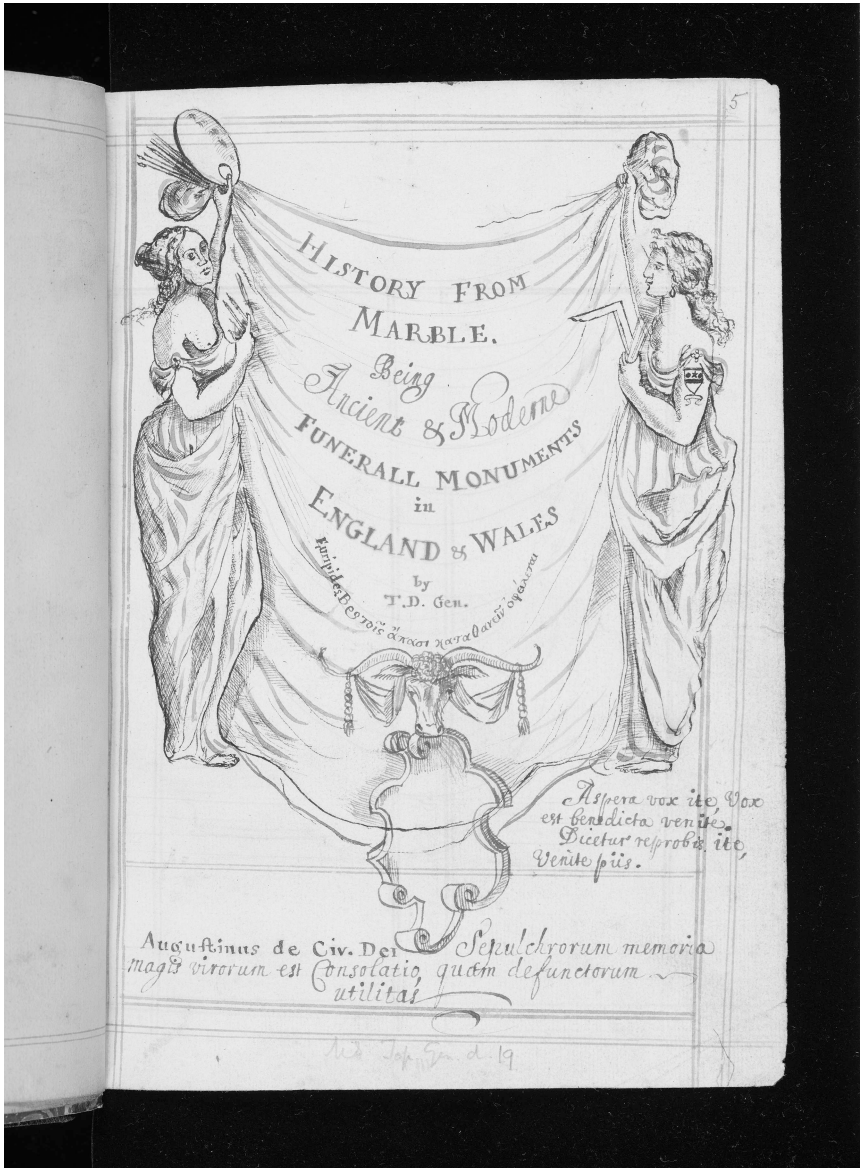 5
HISTORY FROM
MARBLE.
Being
Ancient & Moderne
FUNERALL MONUMENTS
in
ENGLAND & WALES
by
T.D. Gen.
Aspera vox ite, Vox
est benedicta venite.
Dicetur reprobis ite,
Venite piis.
Augustinus de Civ. Dei Sepulchrorum memoria
magis virorum est Consolatio, quam defunctorum
utilitas
Top. Gen. d. 19